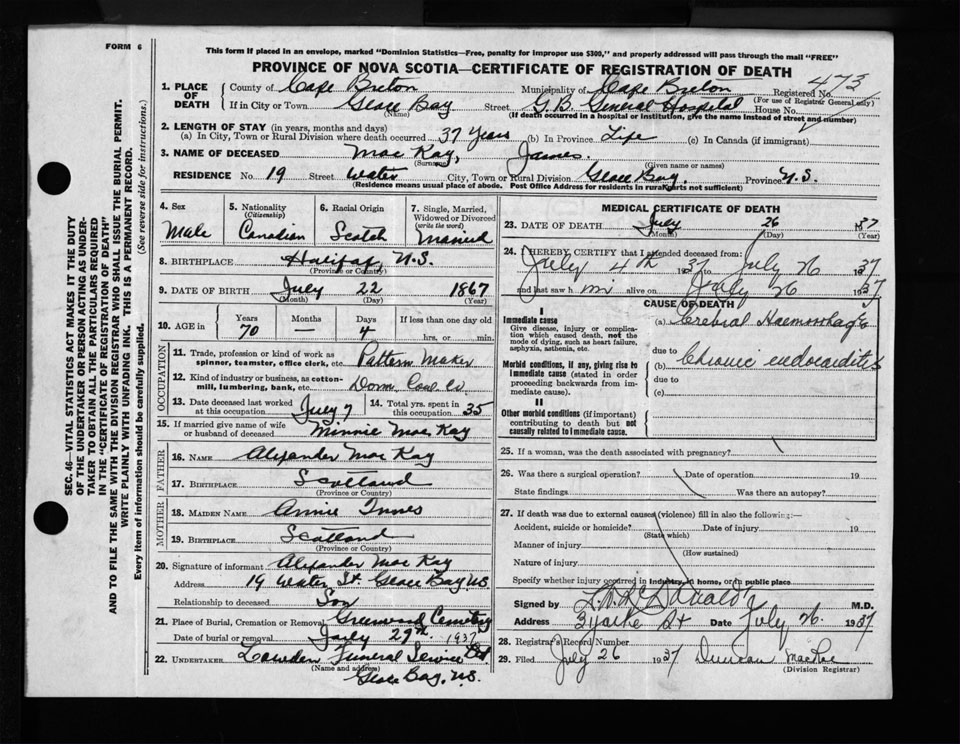 FORM 6
This form if placed in an envelope, marked "Dominion Statistics—Free, penalty for improper use $300," and properly addressed will pass through the mail "FREE"
PROVINCE OF NOVA SCOTIA—CERTIFICATE OF REGISTRATION OF DEATH
473
1. PLACE OF DEATH County of Cape Breton Municipality of Cape Breton Registered No.
(For use of Registrar General only)
If in City or Town Glace Bay Street G.B. General Hospital House No.
(Name) (If death occurred in a hospital or institution, give the name instead of street and number)
2. LENGTH OF STAY (in years, months and days)
(a) In City, Town or Rural Division where death occurred 37 Years (b) In Province Life (c) In Canada (if immigrant)
3. NAME OF DECEASED Mac Kay, James.
(Surname) (Given name or names)
RESIDENCE No. 19 Street Water City, Town or Rural Division Glace Bay. Province N.S.
(Residence means usual place of abode. Post Office Address for residents in rural parts not sufficient)
4. Sex Male
5. Nationality (Citizenship) Canadian
6. Racial Origin Scotch
7. Single, Married, Widowed or Divorced (write the word) Married
8. BIRTHPLACE Halifax, N.S.
(Province or Country)
9. DATE OF BIRTH July 22 1867
(Month) (Day) (Year)
10. AGE in Years 70 Months — Days 4 If less than one day old hrs. or min.
OCCUPATION
11. Trade, profession or kind of work as spinner, teamster, office clerk, etc. Pattern Maker
12. Kind of industry or business, as cotton-mill, lumbering, bank, etc. Dom. Coal Co.
13. Date deceased last worked at this occupation July 7 14. Total yrs. spent in this occupation 35
15. If married give name of wife or husband of deceased Minnie Mac Kay
FATHER
16. NAME Alexander Mac Kay
17. BIRTHPLACE Scotland
(Province or Country)
MOTHER
18. MAIDEN NAME Annie Innes
19. BIRTHPLACE Scotland
(Province or Country)
20. Signature of informant Alexander Mac Kay
Address 19 Water St. Glace Bay N.S.
Relationship to deceased Son
21. Place of Burial, Cremation or Removal Greenwood Cemetery
Date of burial or removal July 29th 1937
22. UNDERTAKER Lowden Funeral Service Ltd.
(Name and address)
Glace Bay, N.S.
MEDICAL CERTIFICATE OF DEATH
23. DATE OF DEATH July 26 37
(Month) (Day) (Year)
24. I HEREBY CERTIFY that I attended deceased from:
July 4th 1937 to July 26 1937
and last saw him alive on July 26 1937
CAUSE OF DEATH
I
Immediate cause
Give disease, injury or complication which caused death, not the mode of dying, such as heart failure, asphyxia, asthenia, etc.
(a) Cerebral Haemorrhage
due to
Morbid conditions, if any, giving rise to Immediate cause (stated in order proceeding backwards from immediate cause).
(b) Chronic endocarditis
due to
(c)
II
Other morbid conditions (if important) contributing to death but not causally related to Immediate cause.
25. If a woman, was the death associated with pregnancy?
26. Was there a surgical operation? Date of operation 19
State findings Was there an autopsy?
27. If death was due to external causes (violence) fill in also the following:—
Accident, suicide or homicide? Date of injury 19
(State which)
Manner of injury
(How sustained)
Nature of injury
Specify whether injury occurred in industry, in home, or in public place
Signed by McDonald M.D.
Address St Date July 26. 1937
28. Registrar's Record Number
29. Filed July 26 1937 Duncan MacRae
(Division Registrar)
SEC. 46—VITAL STATISTICS ACT MAKES IT THE DUTY
OF THE UNDERTAKER OR PERSON ACTING AS UNDER-
TAKER TO OBTAIN ALL THE PARTICULARS REQUIRED
IN THE "CERTIFICATE OF REGISTRATION OF DEATH"
AND TO FILE THE SAME WITH THE DIVISION REGISTRAR WHO SHALL ISSUE THE BURIAL PERMIT.
WRITE PLAINLY WITH UNFADING INK. THIS IS A PERMANENT RECORD.
Every item of information should be carefully supplied. (See reverse side for instructions.)